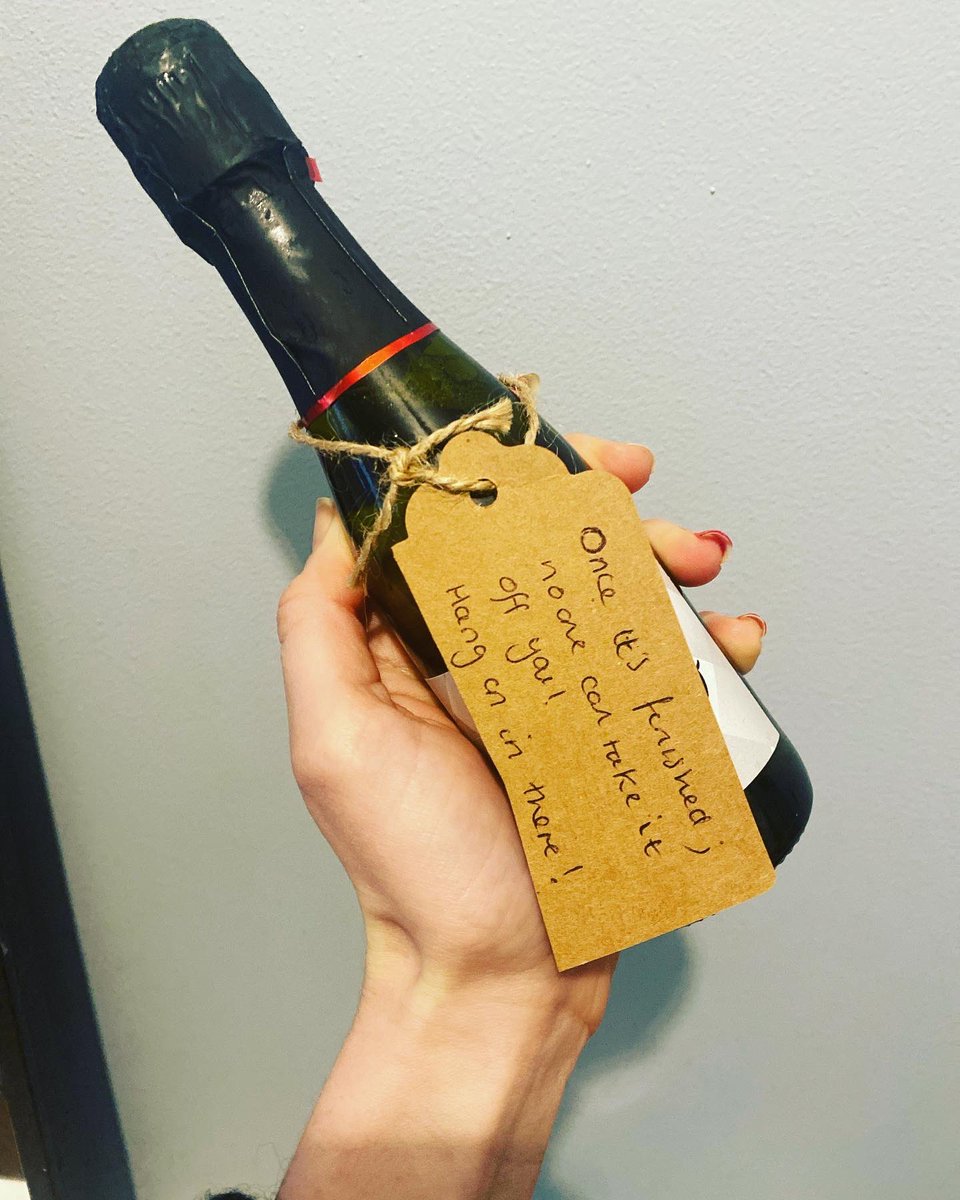 Once it's finished;
no one can take it
off you!
Hang on in there!